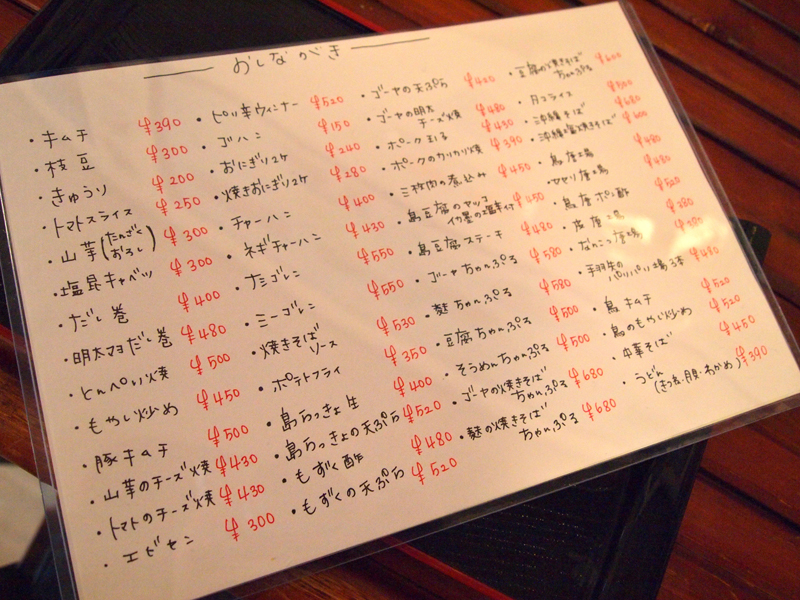 おしながき
・キムチ ¥390
・枝豆 ¥300
・きゅうり ¥200
・トマトスライス ¥250
・山芋(たんざく おろし) ¥300
・塩昆キャベツ ¥300
・だし巻 ¥400
・明太マヨだし巻 ¥480
・とんぺい焼 ¥500
・もやし炒め ¥450
・豚キムチ ¥500
・山芋のチーズ焼 ¥430
・トマトのチーズ焼 ¥430
・エビセン ¥300
・ピリ辛ウィンナー ¥520
・ゴハン ¥150
・おにぎり2ケ ¥240
・焼きおにぎり2ケ ¥280
・チャーハン ¥400
・ネギチャーハン ¥430
・ナシゴレン ¥550
・ミーゴレン ¥550
・焼きそば
ソース ¥530
・ポテトフライ ¥350
・島らっきょ生 ¥400
・島らっきょの天ぷら ¥520
・もずく酢 ¥480
・もずくの天ぷら ¥520
・ゴーヤの天ぷら ¥420
・ゴーヤの明太
チーズ焼 ¥480
・ポーク玉子 ¥430
・ポークのカリカリ焼 ¥390
・三枚肉の煮込み ¥450
・島豆腐のヤッコ
イカ墨の塩辛付 ¥450
・島豆腐ステーキ ¥480
・ゴーヤちゃんぷる ¥580
・麩ちゃんぷる ¥580
・豆腐ちゃんぷる ¥500
・そうめんちゃんぷる ¥500
・ゴーヤの焼きそば
ちゃんぷる ¥680
・麩の焼きそば
ちゃんぷる ¥680
・豆腐の焼きそば
ちゃんぷる ¥600
・タコライス
・沖縄そば ¥680
・沖縄塩焼きそば ¥600
・鳥唐揚 ¥480
・ヤゲン唐揚 ¥480
・鳥唐ポン酢 ¥520
・皮唐揚 ¥280
・なんこつ唐揚
・手羽先の
パリパリ揚 3本 ¥480
・鳥キムチ ¥520
・鳥のもやし炒め ¥520
・中華そば ¥450
・うどん
(きつね・月見・わかめ) ¥390